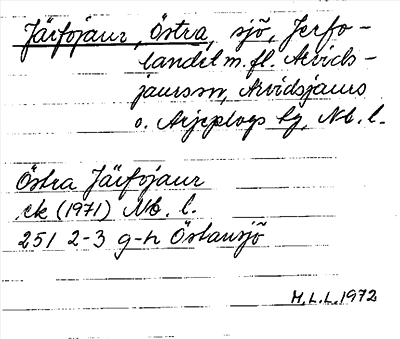 Järfojaur, Östra, sjö, Jerfo-
landet m. fl. Arvids-
jaursm, Arvidsjaurs
o. Arjeplogs tg, Nb. l.
Östra Järfojaur
ek (1971) Nb. l.
251 2-3 g-h Östansjö
H.L.L. 1972